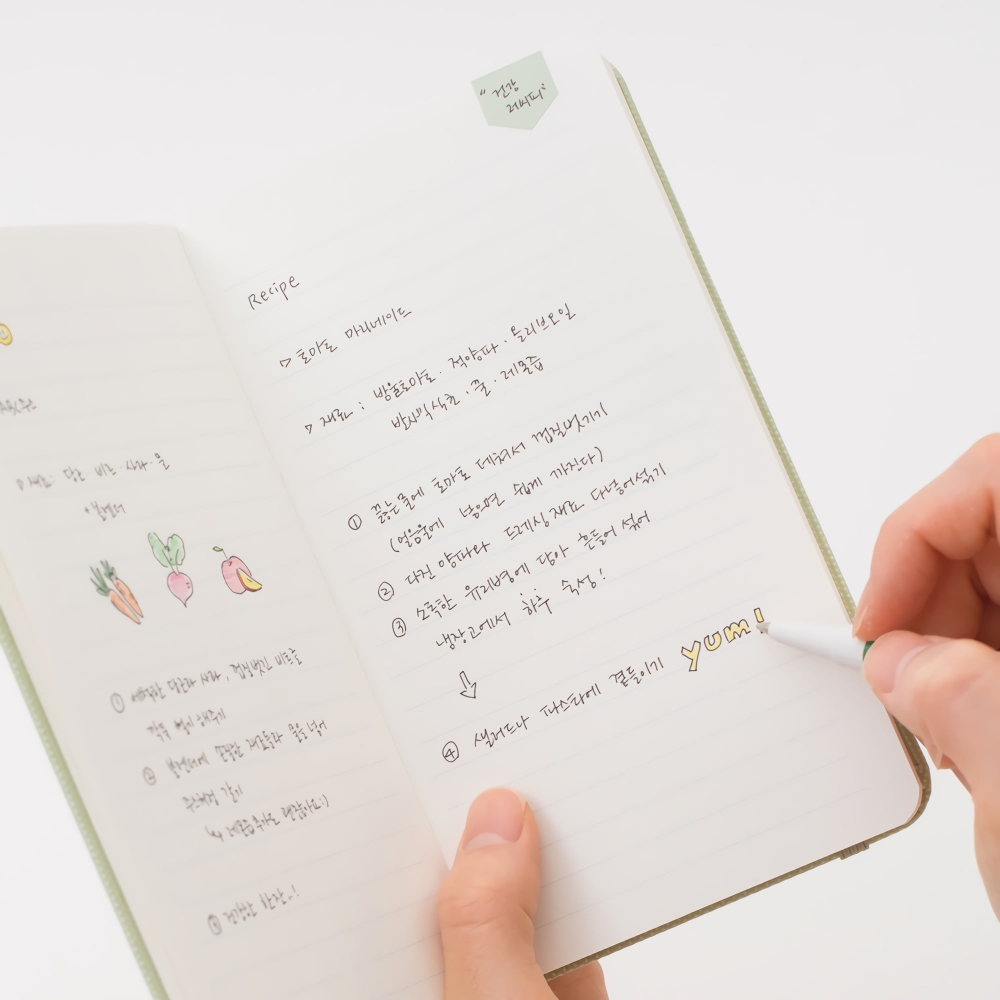 재료: 당근·비트·사과·물
① 세척한 당근과 사과, 껍질벗긴 비트를
깍뚝 썰기 해주기
② 블렌더에 손질한 재료들과 물을 넣어
주스처럼 갈기
↳ 레몬즙추가도 괜찮아요:)
③ 건강한 한잔~!
"건강
레시피"
Recipe
▷ 토마토 마리네이드
▷ 재료 : 방울토마토·적양파·올리브오일
발사믹식초·꿀·레몬즙
① 끓는물에 토마토 데쳐서 껍질벗기기
(얼음물에 넣으면 쉽게 까진다)
② 다진 양파와 드레싱재료 다넣어섞기
③ 소독한 유리병에 담아 흔들어 섞어
냉장고에서 하루 숙성!
④ 샐러드나 파스타에 곁들이기 yum!